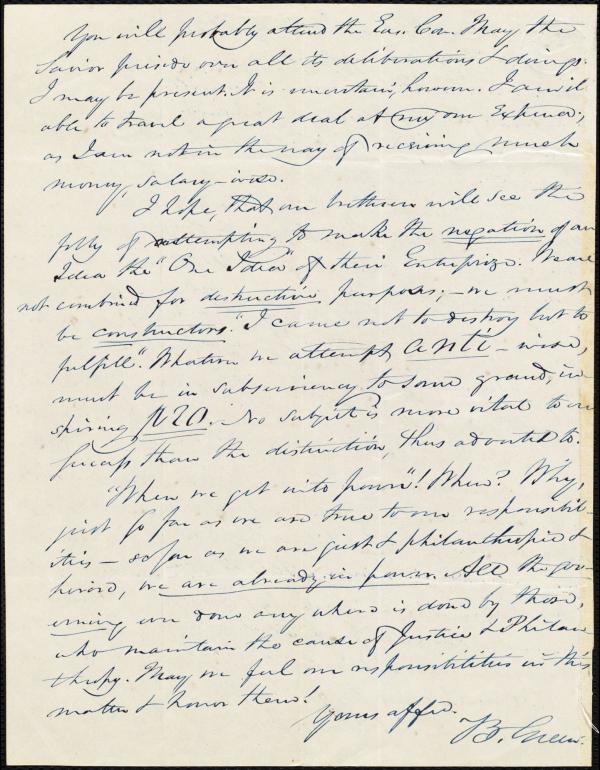 You will probably attend the Eas. Con. May the
Savior preside over all its deliberations & doings.
I may be present. It is uncertain, however. I am il
able to travel a great deal at my own Expense,
as I am not in the way of receiving much
money, salary-wise.
I hope, that our brethren will see the
folly of attempting to make the negation of an
Idea the "One Idea" of their Enterprize. We are
not combined for destructive purposes;—we must
be constructors. "I came not to destroy but to
fulfill". Whatever we attempt anti-wise,
must be in subserviency to some grand, in-
spiring pro. No subject is more vital to our
success than the distinction, thus adverted to.
"When we get into power"! When? Why,
just so far as we are true to our responsibil-
ities — so far as we are just & philanthropic &
heroic, we are already in power. All the gov-
erning ever done any where is done by those,
who maintain the cause of Justice & Philan-
thropy. May we feel our responsibilities in this
matter & honor them!
Yours affec.
B. Green.